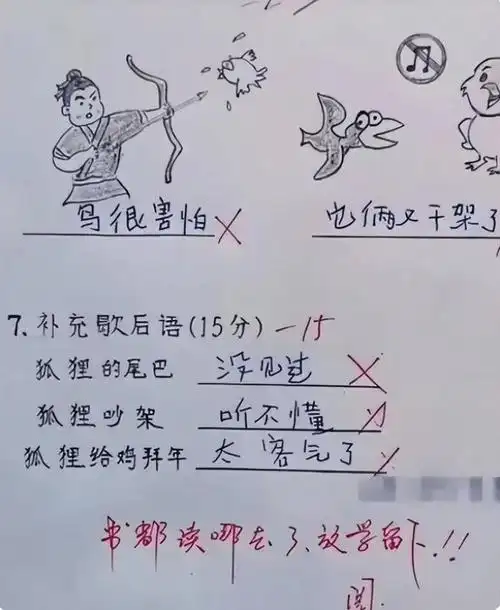 鸟很害怕
它俩又干架了
7.补充歇后语(15分) -15
狐狸的尾巴 没见过
狐狸吵架 听不懂
狐狸给鸡拜年 太客气了
书都读哪去了,放学留下!!
阅